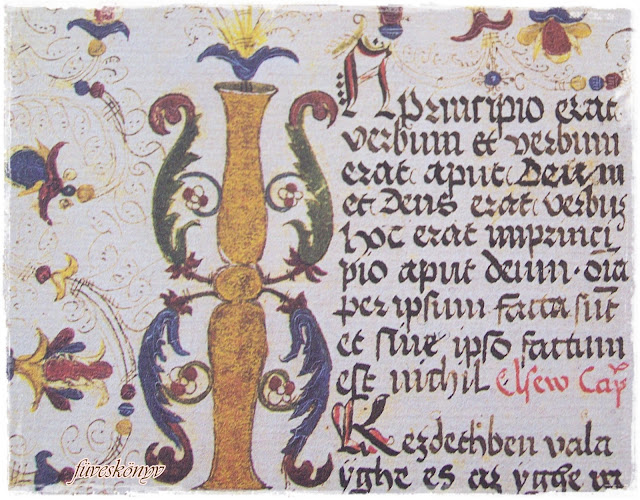 IN principio erat
verbum et verbum
erat aput Deum
et Deus erat verbuʒ
hoc erat inprinci
pio aput deum · oīa
per ipsum facta sūt
et sine ipso factum
est nichil Elsew Cap̄
Kezdethben vala
yghe es az yghe va
füveskönyv